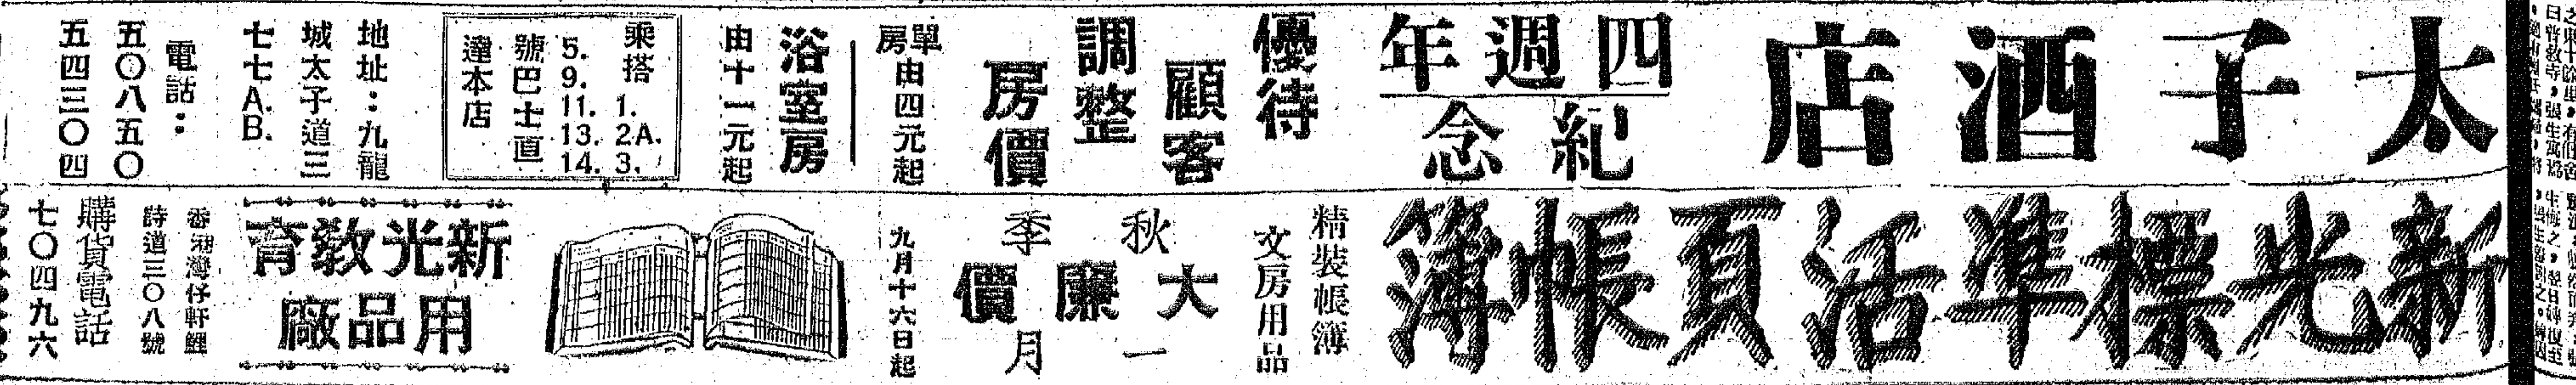 太子酒店
四週年
紀念
優待
顧客
調整
房價
單房由四元起
浴室房
由十一元起
乘搭 1. 2A. 3.
5. 9. 11. 13. 14.
號巴士直
達本店
地址：九龍
城太子道三
七七A.B.
電話：
五〇八五〇
五四三〇四
新光標準活頁帳簿
精裝帳簿
文房用品
秋季
大廉價
一月
九月十六日起
新光敎育
用品廠
香港灣仔軒鯉
詩道三〇八號
購貨電話
七〇四九六